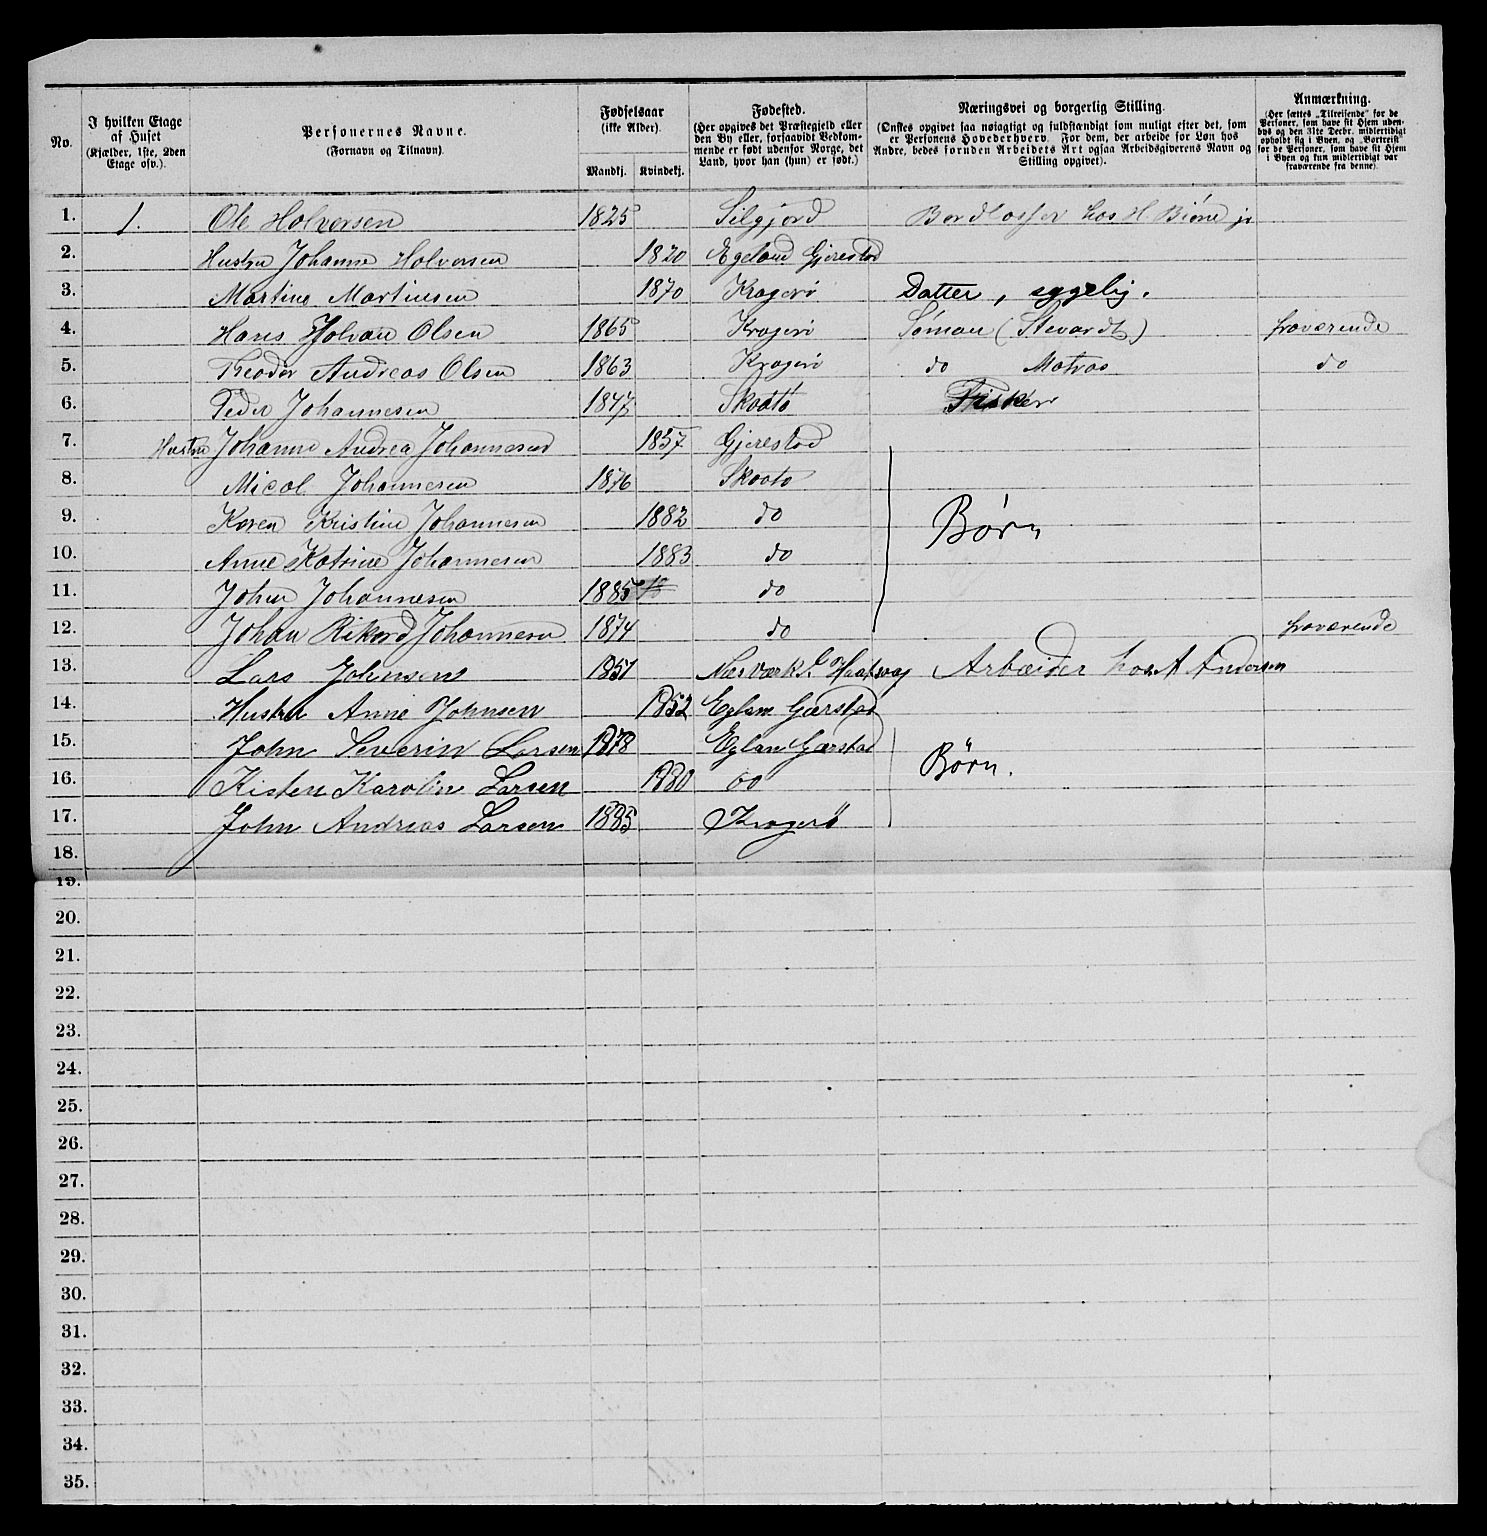 No.
I hvilken Etage
af Huset
(Kjælder, 1ste, 2den
Etage osv.).
Personernes Navne.
(Fornavn og Tilnavn).
Fødselsaar
(ikke Alder).
Mandkj. Kvindekj.
Fødested.
(Her opgives det Præstegjeld eller
den By eller, forsaavidt Vedkom-
mende er født udenfor Norge, det
Land, hvor han (hun) er født.)
Næringsvei og borgerlig Stilling.
(Ønskes opgivet saa nøiagtigt og fuldstændigt som muligt efter det, som
er Personens Hovederhverv. For dem, der arbeide for Løn hos
Andre, bedes foruden Arbeidets Art ogsaa Arbeidsgiverens Navn og
Stilling opgivet).
Anmærkning.
(Her sættes „Tilreisende“ for de
Personer, som have sit Hjem uden-
bys og den 31te Decbr. midlertidigt
opholdt sig i Byen, og „Bortreist“
for de Personer, som have sit Hjem
i Byen og kun midlertidigt var
fraværende fra denne).
1. 1. Ole Halvorsen 1825 Silgjord hos H. Biørn jr
2. Hustru Johanne Halvorsen 1820 Egeland Gjerestad
3. Martine Martinsen 1870 Kragerö Datter, sygelig.
4. Hans Olsen 1865 Kragerö Söman (Stevardt) fraværende
5. Theodor Andreas Olsen 1863 Kragerö do Matros do
6. Peder Johannesen 1847 Skaatö Fisker
7. Hustru Johanne Andrea Johannesen 1857 Gjerestad
8. Micol Johannesen 1876 Skaatö
9. Karen Kristine Johannesen 1882 do Børn
10. Anne Katrine Johannesen 1883 do
11. Johan Johannesen 1885 do
12. Johan Rikard Johannesen 1874 do fraværende
13. Lars Johnsens 1851 Næs værk Arbæider hos A Andersen
14. Hustru Anne Johnsen 1852 Eglan Gærstad
15. John Severin Larsen 1878 Eglan Gærstad
16. Kisten Karolin Larsen 1880 do Børn.
17. John Andrias Larsen 1885 Kragerö
18.
19.
20.
21.
22.
23.
24.
25.
26.
27.
28.
29.
30.
31.
32.
33.
34.
35.